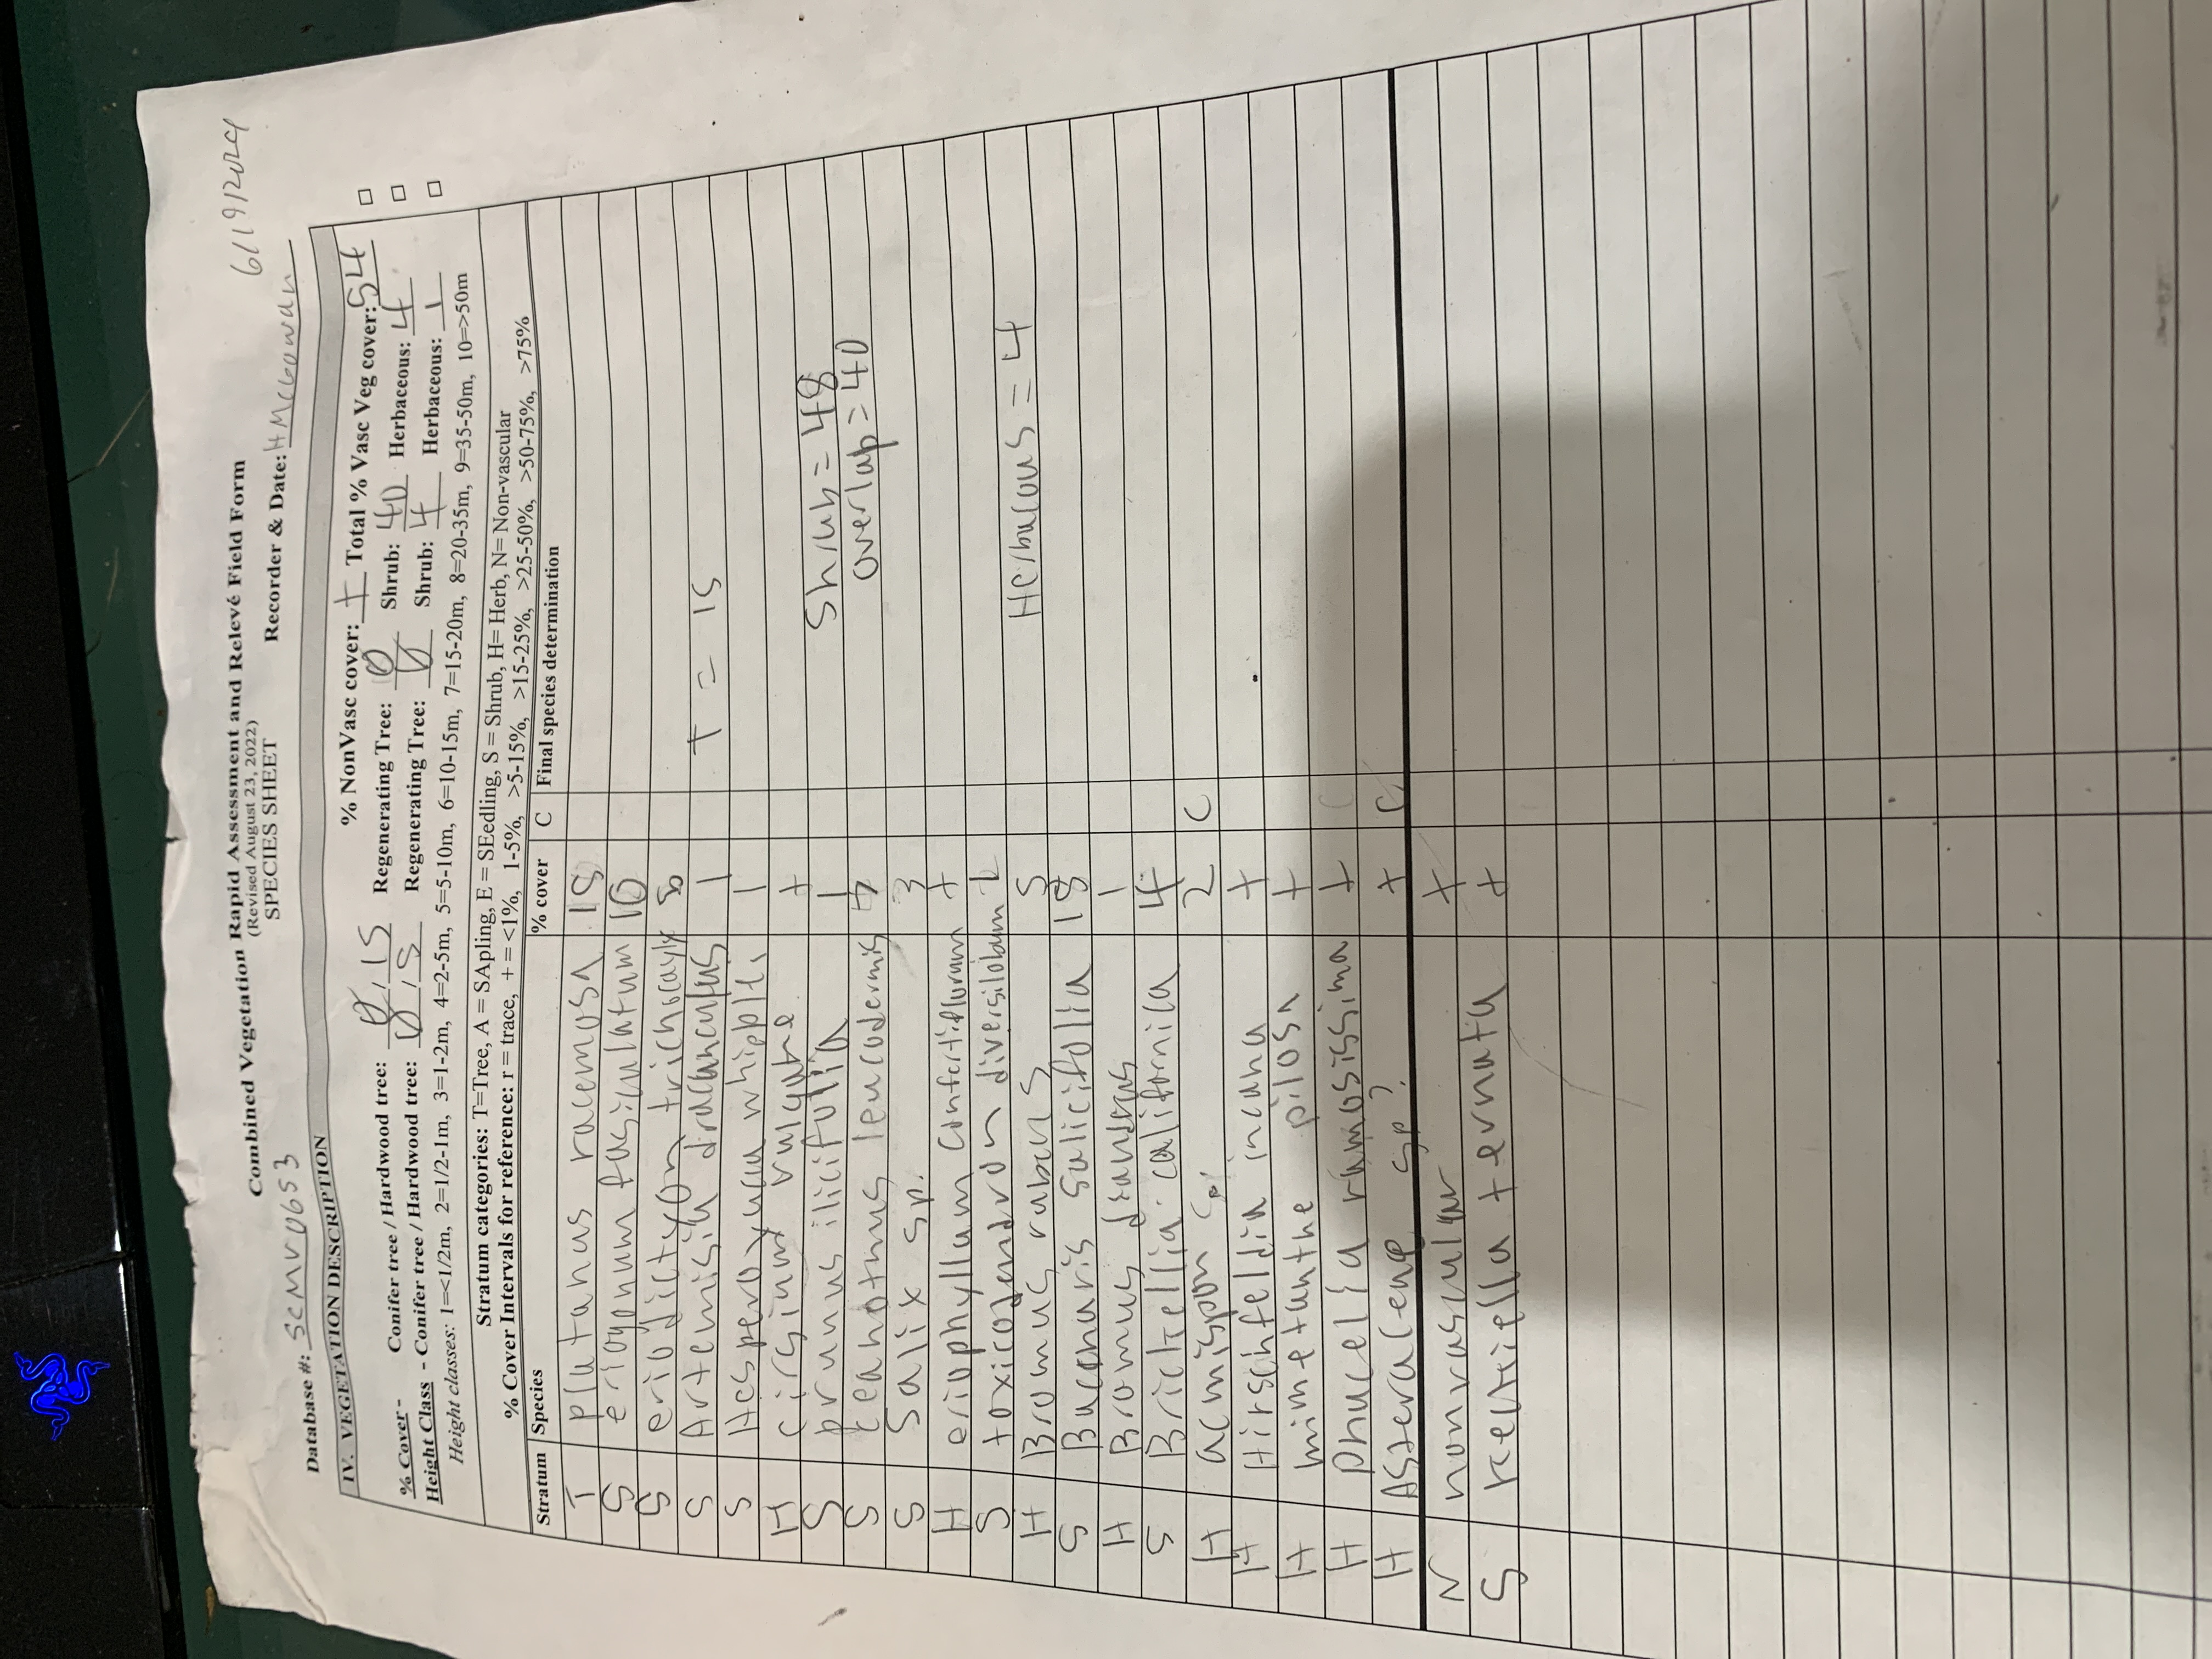 Combined Vegetation Rapid Assessment and Relevé Field Form
(Revised August 23, 2022)
SPECIES SHEET
6/19/2024
Database #: SCMV0653 Recorder & Date: H McGowan
IV. VEGETATION DESCRIPTION
% NonVasc cover: + Total % Vasc Veg cover: 54
% Cover - Conifer tree / Hardwood tree: 0 / 15 Regenerating Tree: 0 Shrub: 40 Herbaceous: 4
Height Class - Conifer tree / Hardwood tree: 0 / 5 Regenerating Tree: 0 Shrub: 4 Herbaceous: 1
Height classes: 1=<1/2m, 2=1/2-1m, 3=1-2m, 4=2-5m, 5=5-10m, 6=10-15m, 7=15-20m, 8=20-35m, 9=35-50m, 10=>50m
Stratum categories: T=Tree, A = SApling, E = SEedling, S = Shrub, H= Herb, N= Non-vascular
% Cover Intervals for reference: r = trace, + = <1%, 1-5%, >5-15%, >15-25%, >25-50%, >50-75%, >75%
Stratum Species % cover C Final species determination
T platanus racemosa 15
S eriogonum fasiculatum 10
S eriodictyon trichocalyx 8
S Artemisia dracunculus 1 T = 15
S Hesperoyucca whipplei 1
H cirsium vulgare +
S prunus ilicifolia 1 Shrub = 48
S ceanothus leucodermis overlap = 40
S Salix sp. 3
H eriophyllum confertiflorum +
S toxicodendron diversilobum 1
H Bromus rubens Herbacous = 4
S Baccharis salicifolia 15
H Bromus 1
S Brickellia californica 4
H acmispon sp. 2 C
H Hirschfeldia incana +
H mimetanthe pilosa +
H phacelia ramosissima + C
H Asteraceae sp? + C
N nonvascular +
S keckiella ternata +